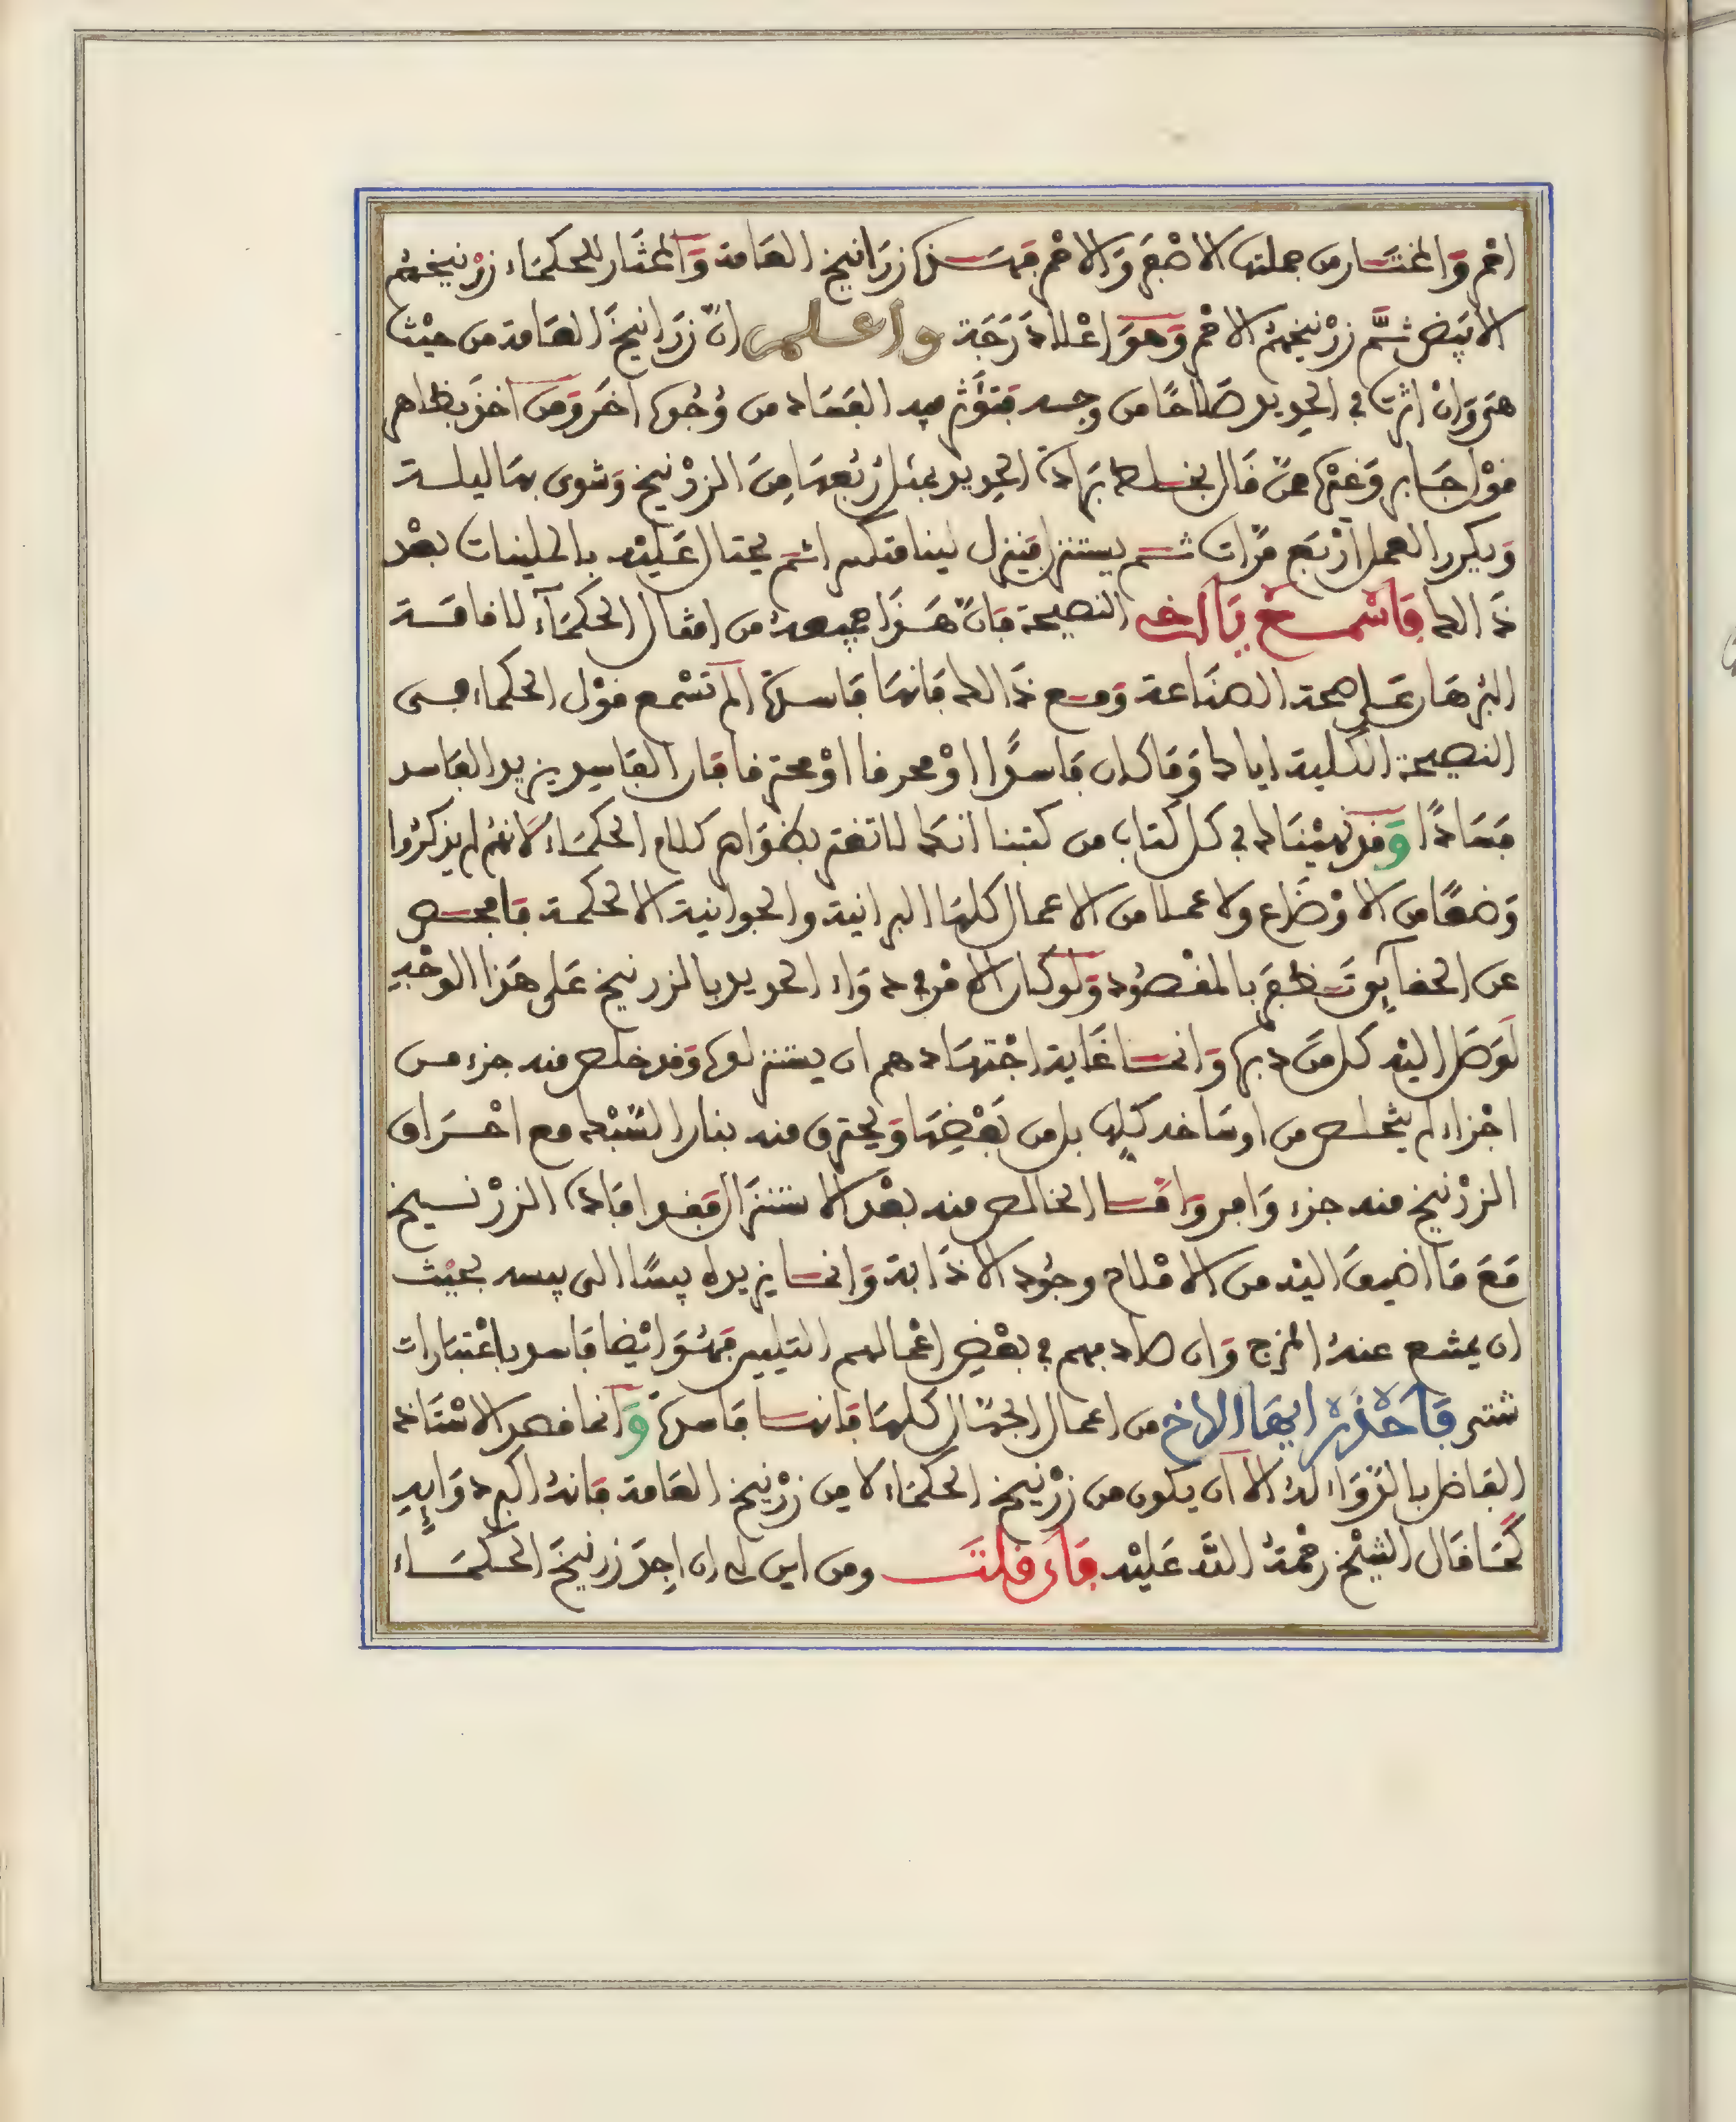 احمر والمختار من جملتها الاصفر والاحمر فهذه زرانيخ العامة والمختار للحكماء زرنيخهم
الابيض ثم زرنيخهم الاحمر وهو اعلا درجة واعلم ان زرانيخ العامة من حيث
هي وان اثرت في الحديد صلاحا من وجه فتؤثر فيه الفساد من وجوه اخر ومن اخذ بظاهر
قول جابر وغيره ممن قال بخلط برادة الحديد بمثل ربعها من الزرنيخ وشوى بها ليلة
ويكرر العمل اربع مرات ثم يستنزل فينزل لينا منكسرا ثم يحتال عليه بالملينات بعد
ذالك فاسمع يا اخي النصيحة فان هذا جميعه من امثال الحكماء لاقامة
البرهان على صحة الصناعة ومع ذالك فانها فاسدة الم تسمع قول الحكماء في
النصيحة الكلية اياك وما كان فاسدا او محرقا او محترقا فان الفاسد يزيد الفاسد
فسادا وقد نهيناك في كل كتاب من كتبنا انك لا تغتر بظواهر كلام الحكماء لانهم لم يذكروا
وضعا من الاوضاع ولا عملا من الاعمال كلها البرانية والجوانية الا لحكمة فافحص
عن الحقايق تظفر بالمقصود ولو كان الامر في دواء الحديد بالزرنيخ على هذا الوجه
لوصل اليه كل من دبره وانما غاية اجتهادهم ان يستنزلوه وقد خلص منه جزء من
اجزاء لم يتخلص من اوساخه كلها بل من بعضها ويحترق منه بنار السبك مع احراق
الزرنيخ منه جزء وافر واما الخالص منه بعد الاستنزال فقد افاده الزرنيخ
مع ما اضيف اليه من الاملاح وجود الاذابة وانما يزيده يبسا الى يبسه بحيث
ان يمتنع عنه المزج وان صاد بهم في بعض اعمالهم التليين فهو ايضا فاسد باعتبارات
شتى فاحذر ايها الاخ من اعمال الجهال كلها فانها فاسدة وانما قصد الاستاذ
الفاضل بالدواء له الا ان يكون من زرنيخ الحكماء لا من زرنيخ العامة فانه اكبر دوايه
كما قال الشيخ رحمة الله عليه فان قلت ومن اين لي ان اجد زرنيخ الحكماء